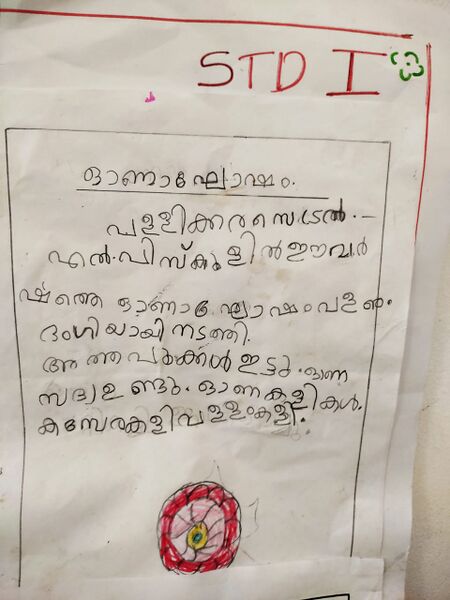 STD I
ഓണാഘോഷം.
പള്ളിക്കര സെൻട്രൽ.-
എൽ.പി സ്കൂളിൽ ഈ വർ
ഷത്തെ ഓണാഘോഷം പള
ഭംഗിയായി നടത്തി.
അത്തപൂക്കൾ ഇട്ടു. ഓണ
സദ്യ ഉണ്ടു. ഓണകളികൾ.
കസേരകളി വള്ളംകളി.